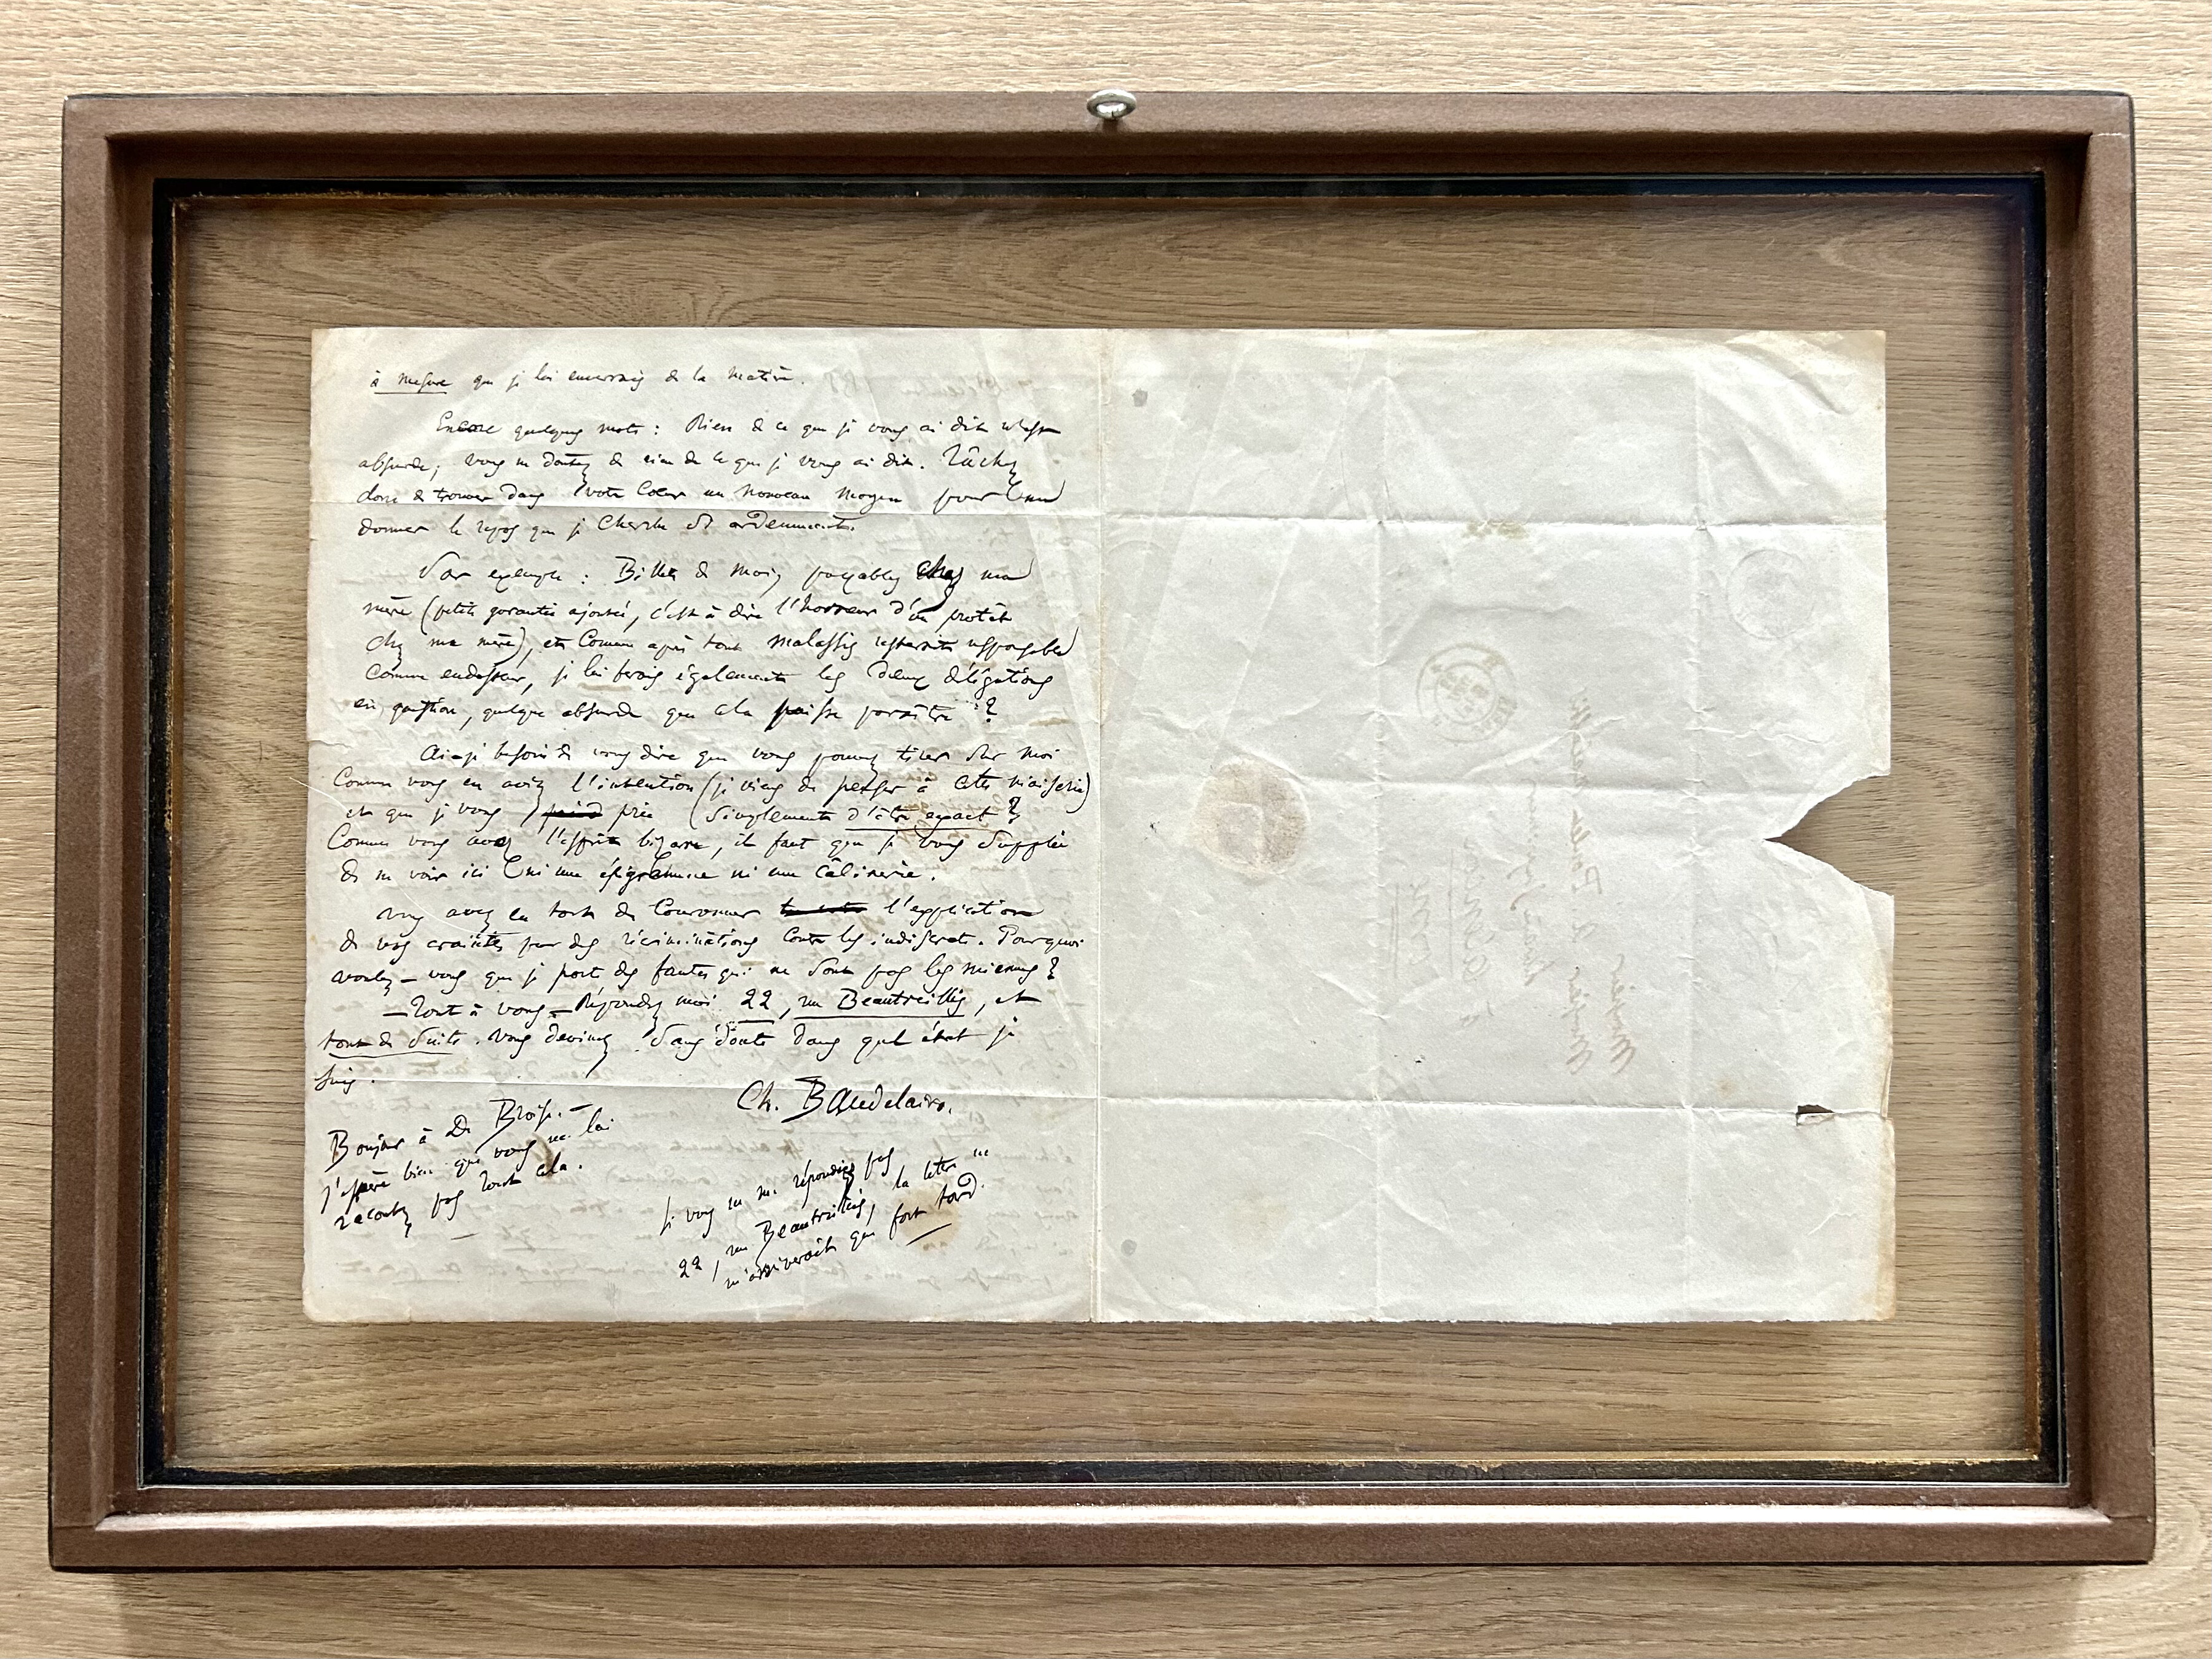 à mesure que je lui enverrais de la matière.
Encore quelques mots : Rien de ce que je vous ai dit n'est
absurde ; vous ne doutez de rien de ce que je vous ai dit. Tâchez
donc de trouver dans votre coeur un nouveau moyen pour me
donner le repos que je cherche si ardemment.
Par exemple : Billets de moi, payables chez ma
mère (petite garantie ajoutée, c'est à dire l'horreur d'un protêt
chez ma mère), et comme après tout Malassis resterait responsable
comme endosseur, je lui ferais également les deux délégations
en question, quelque absurde que cela puisse paraître ?
Ai-je besoin de vous dire que vous pouvez tirer sur moi
comme vous en aviez l'intention (je viens de penser à cette niaiserie)
et que je vous prie simplement d'être exact ?
Comme vous avez l'esprit bizarre, il faut que je vous supplie
de ne voir ici ni une épigramme ni une câlinerie.
Vous avez eu tort de couronner l'explication
de vos craintes par des récriminations contre les indiscrets. Pourquoi
voulez-vous que je porte des fautes qui ne sont pas les miennes ?
— Tout à vous — Répondez moi 22, rue Beautreillis, et
tout de suite. Vous devinez sans doute dans quel état je
suis.
Ch. Baudelaire.
Bonjour à De Broise. —
J'espère bien que vous ne lui
racontez pas tout cela.
Si vous ne me répondiez pas
22, rue Beautreillis, la lettre
m'arriverait que fort tard.